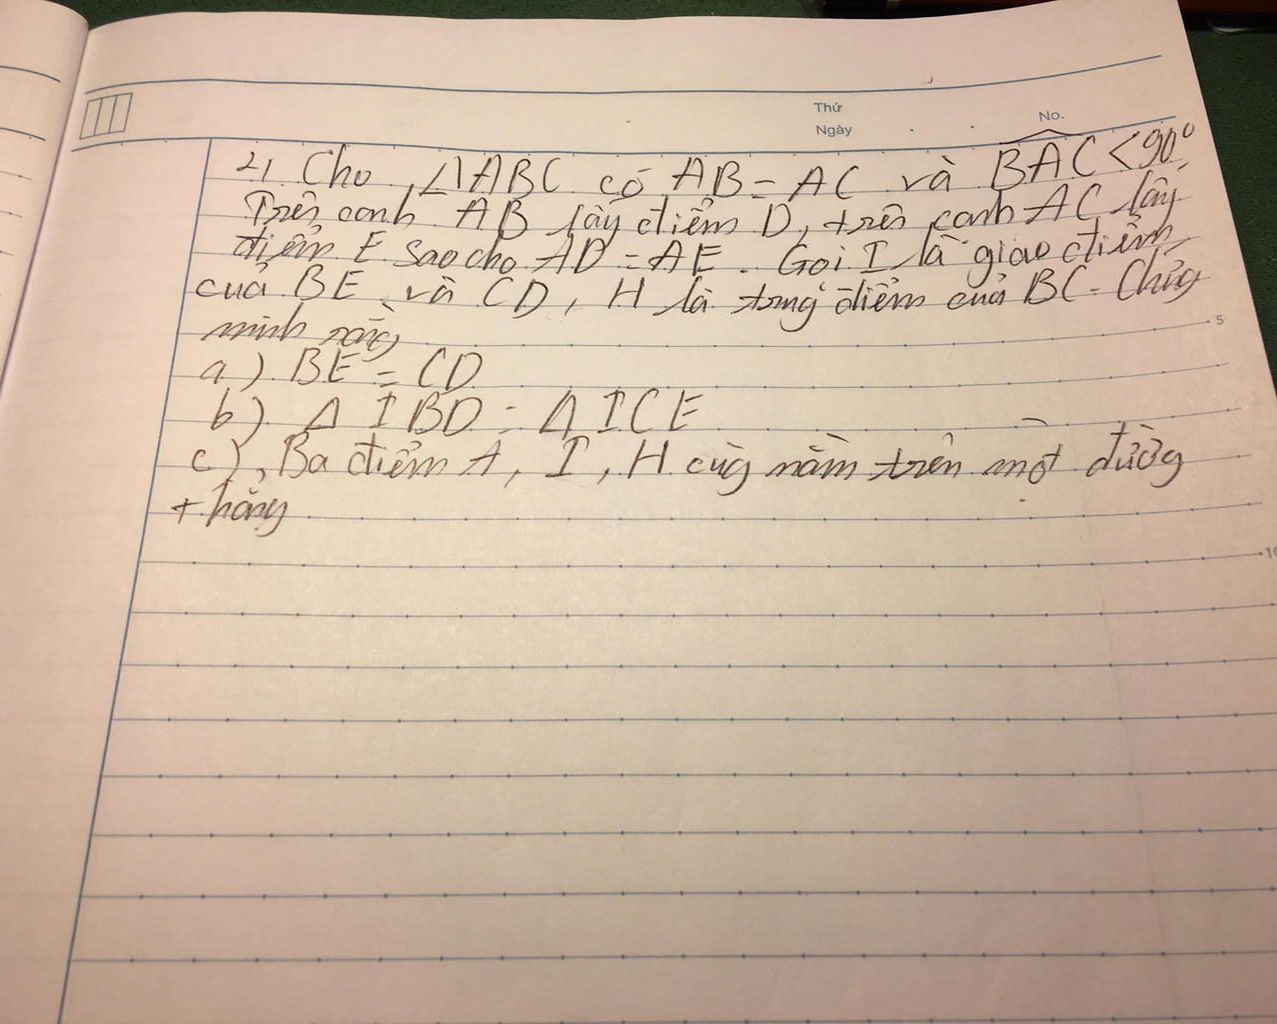 Thứ
Ngày
No.
4) Cho ΔABC có AB = AC và BAC < 90°
Trên cạnh AB lấy điểm D, trên cạnh AC lấy
điểm E sao cho AD = AE. Gọi I là giao điểm
của BE và CD, H là trung điểm của BC. Chứng
minh rằng
5
a) BE = CD
b) Δ IBD = Δ ICE
c) Ba điểm A, I, H cùng nằm trên một đường
thẳng
10